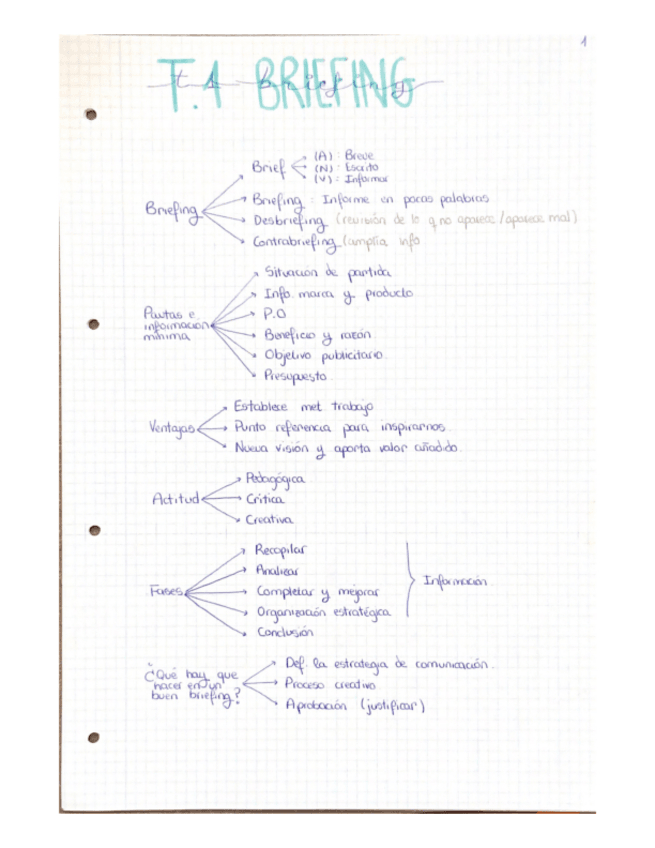 1
T.1 BRIEFING
t.1 briefing
Briefing
Brief
(A) : Breve
(N) : Escrito
(V) : Informar
Briefing : Informe en pocas palabras
Desbriefing (revisión de lo q no aparece/aparece mal)
Contrabriefing (amplía info
Pautas e
información
mínima
Situación de partida
Info. marca y producto
P.O
Beneficio y razón
Objetivo publicitario.
Presupuesto.
Ventajas
Establece met trabajo
Punto referencia para inspirarnos.
Nueva visión y aporta valor añadido.
Actitud
Pedagógica
Crítica
Creativa
Fases
Recopilar
Analizar
Completar y mejorar
Organización estratégica
Conclusión
Información
¿Qué hay que
hacer en un
buen briefing?
Def. la estrategia de comunicación.
Proceso creativo
Aprobación (justificar)